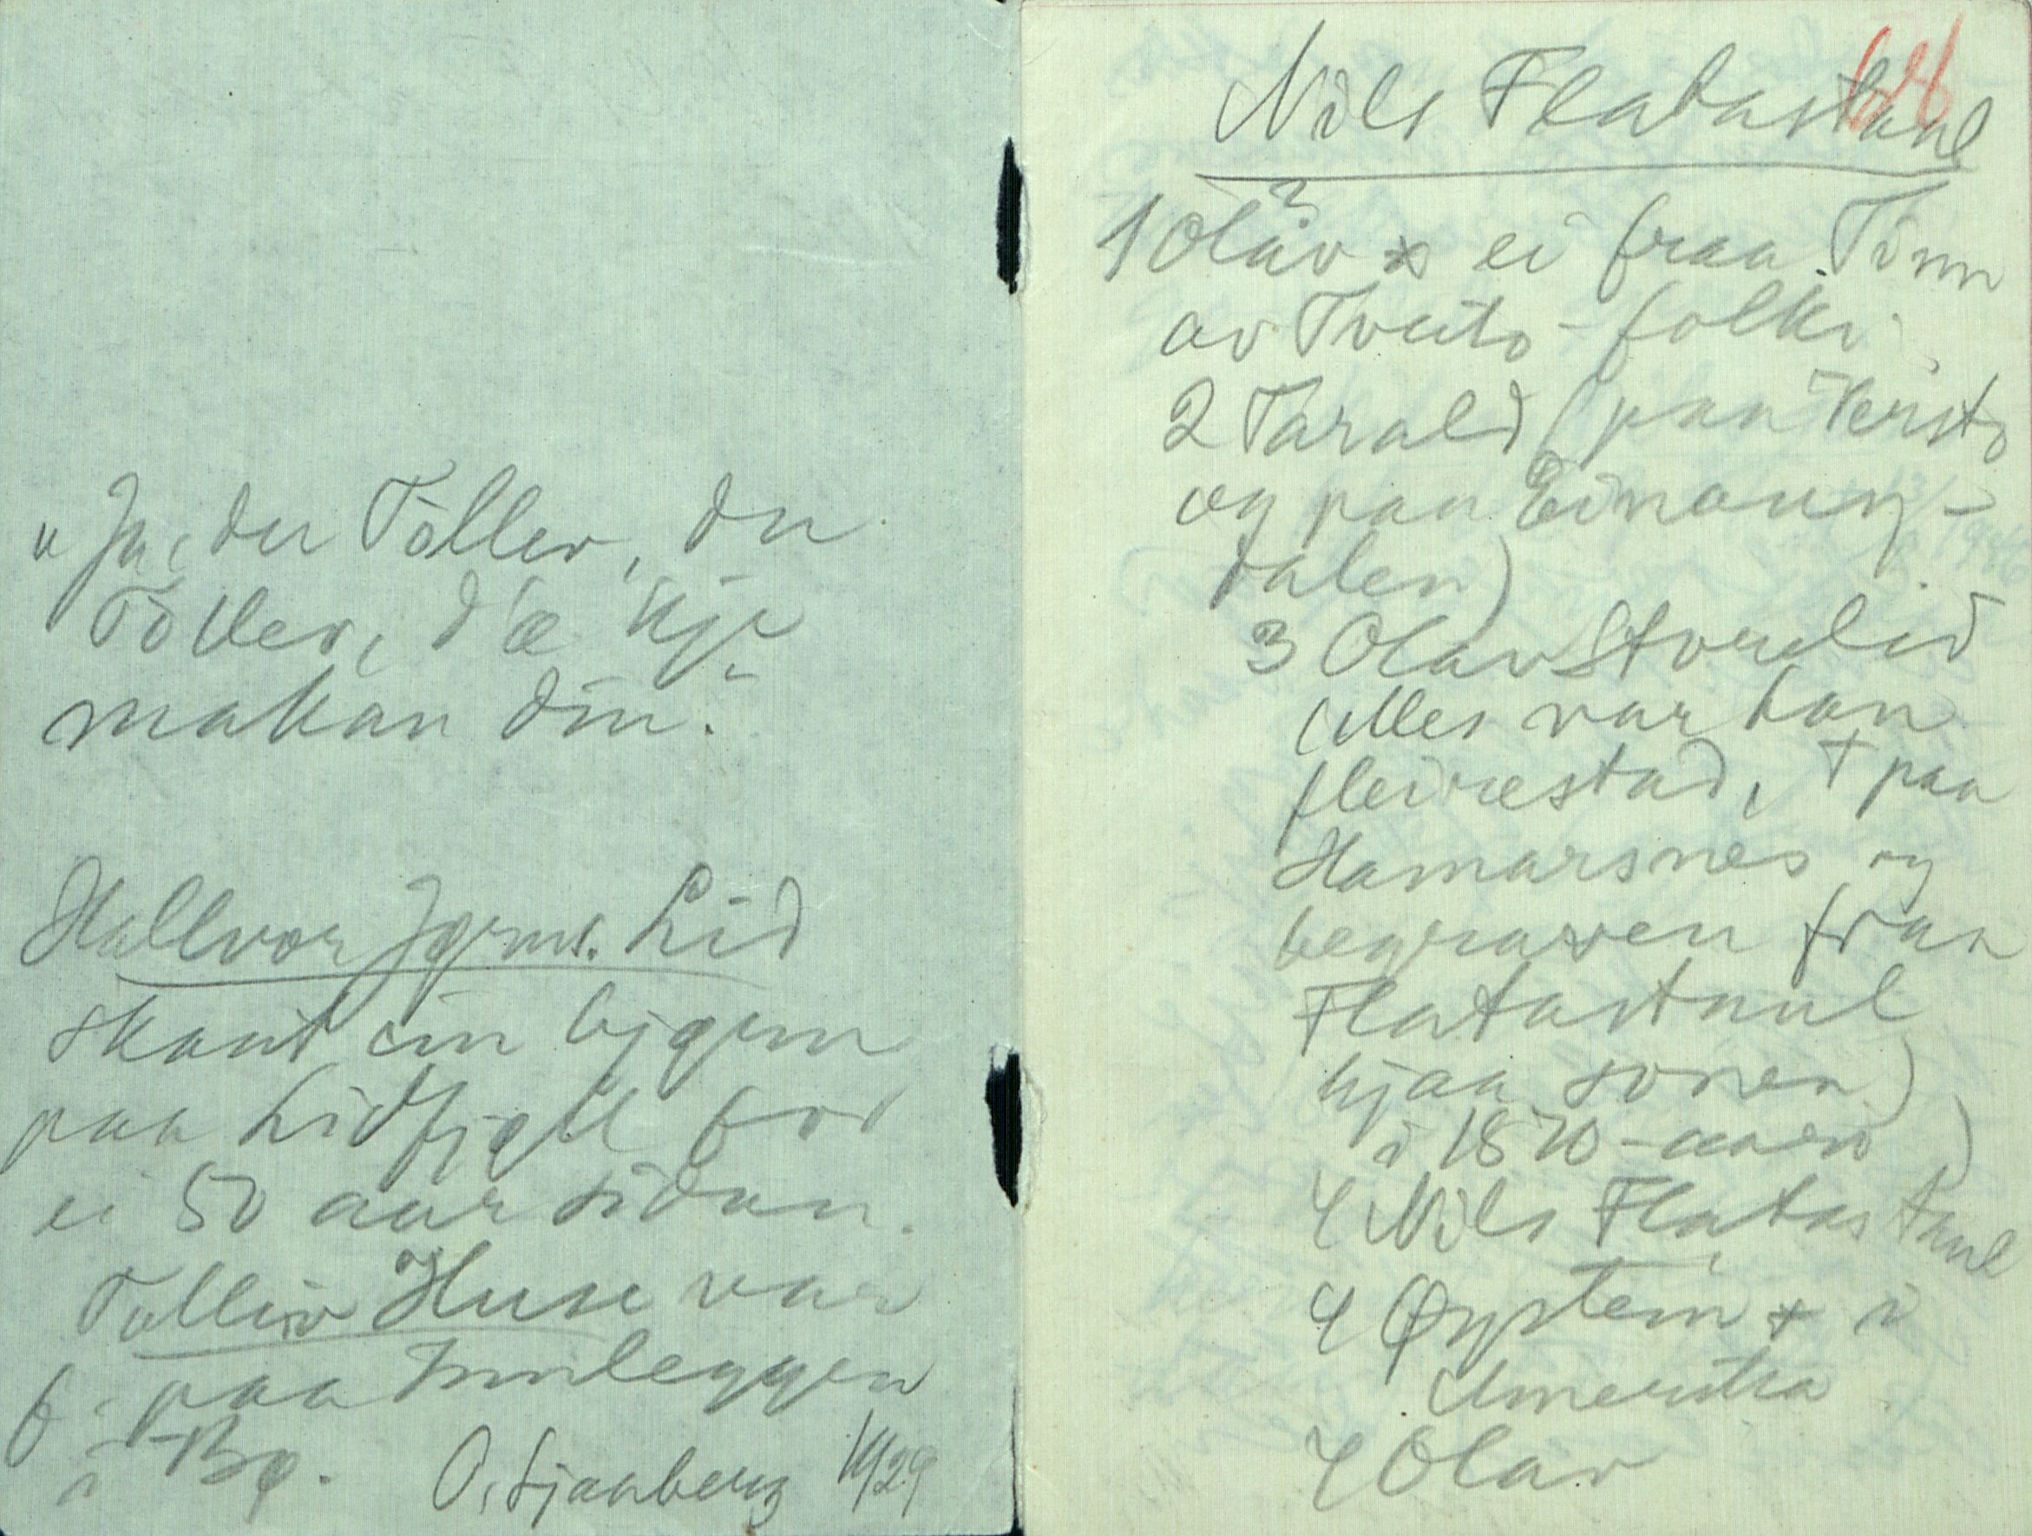 "Ja, du Tollev, du
Tollev, d'æ kje
makan din."
Hallvor Jørns. Lid
skaut ein bjørn
paa Lidfjell for
ei 50 aar sidan.
Tolleiv Huse var
f. paa Innleggen
i Bø. O. Sjaaberg 14/29
Nils Flatastaul
1 Olav x ei fraa Tinn
av Tveito-folki
2 Tarald (paa
og paa Einaung-
dalen)
3 Olav Storelid
(Elles var han
fleirestad, + paa
Hamarsnes og
begraven fraa
Flatastaul
hjaa sonen)
i 1870-aari)
4 Nils Flatastaul
4 Øystein + i
Amerika
4 Olav